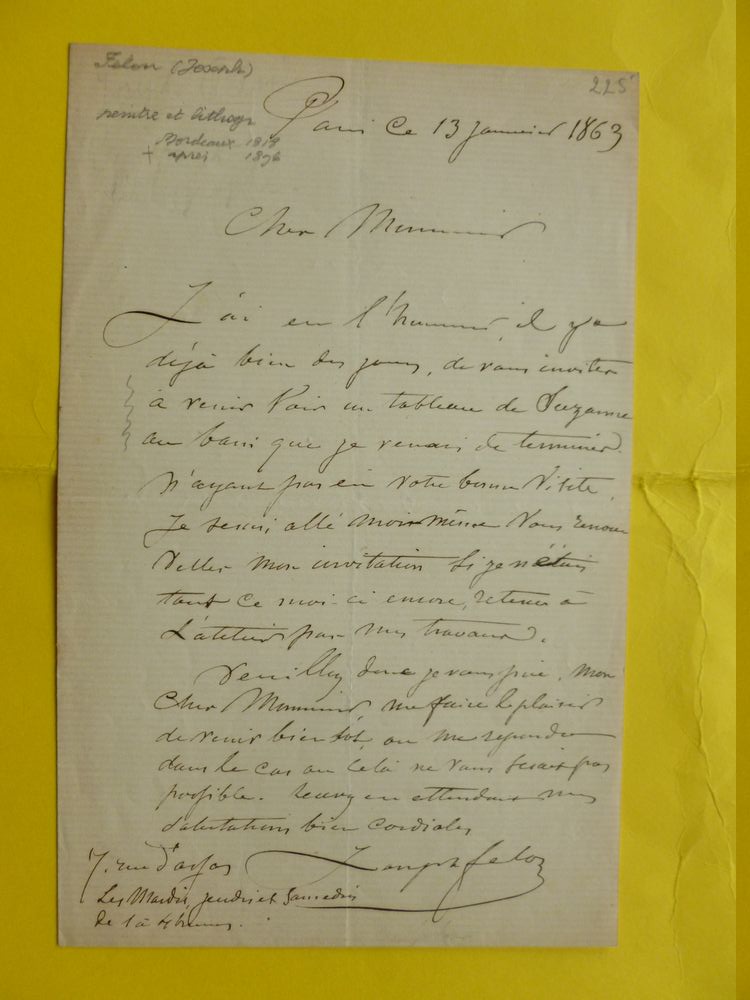 Felon (Joseph)
225
peintre et lithogr
Bordeaux 1818
+ après 1896
Paris ce 13 Janvier 1863
Cher Monsieur
J'ai eu l'honneur, il y a
déjà bien des jours, de vous inviter
à venir voir un tableau de Suzanne
au bain que je venais de terminer.
N'ayant pas eu votre bonne visite,
Je serais allé moi-même vous renou
veller mon invitation si je n'étais
tout ce mois-ci encore, retenu à
L'atelier par mes travaux.
Veuillez donc je vous prie, mon
Cher Monsieur me faire le plaisir
de venir bientôt, ou me répondre
dans le cas ou cela ne vous serait pas
possible. Recevez en attendant mes
salutations bien cordiales
Joseph felon
7, rue d'assas
Les Mardis, jeudis et Samedis
De 1 à 4 heures.